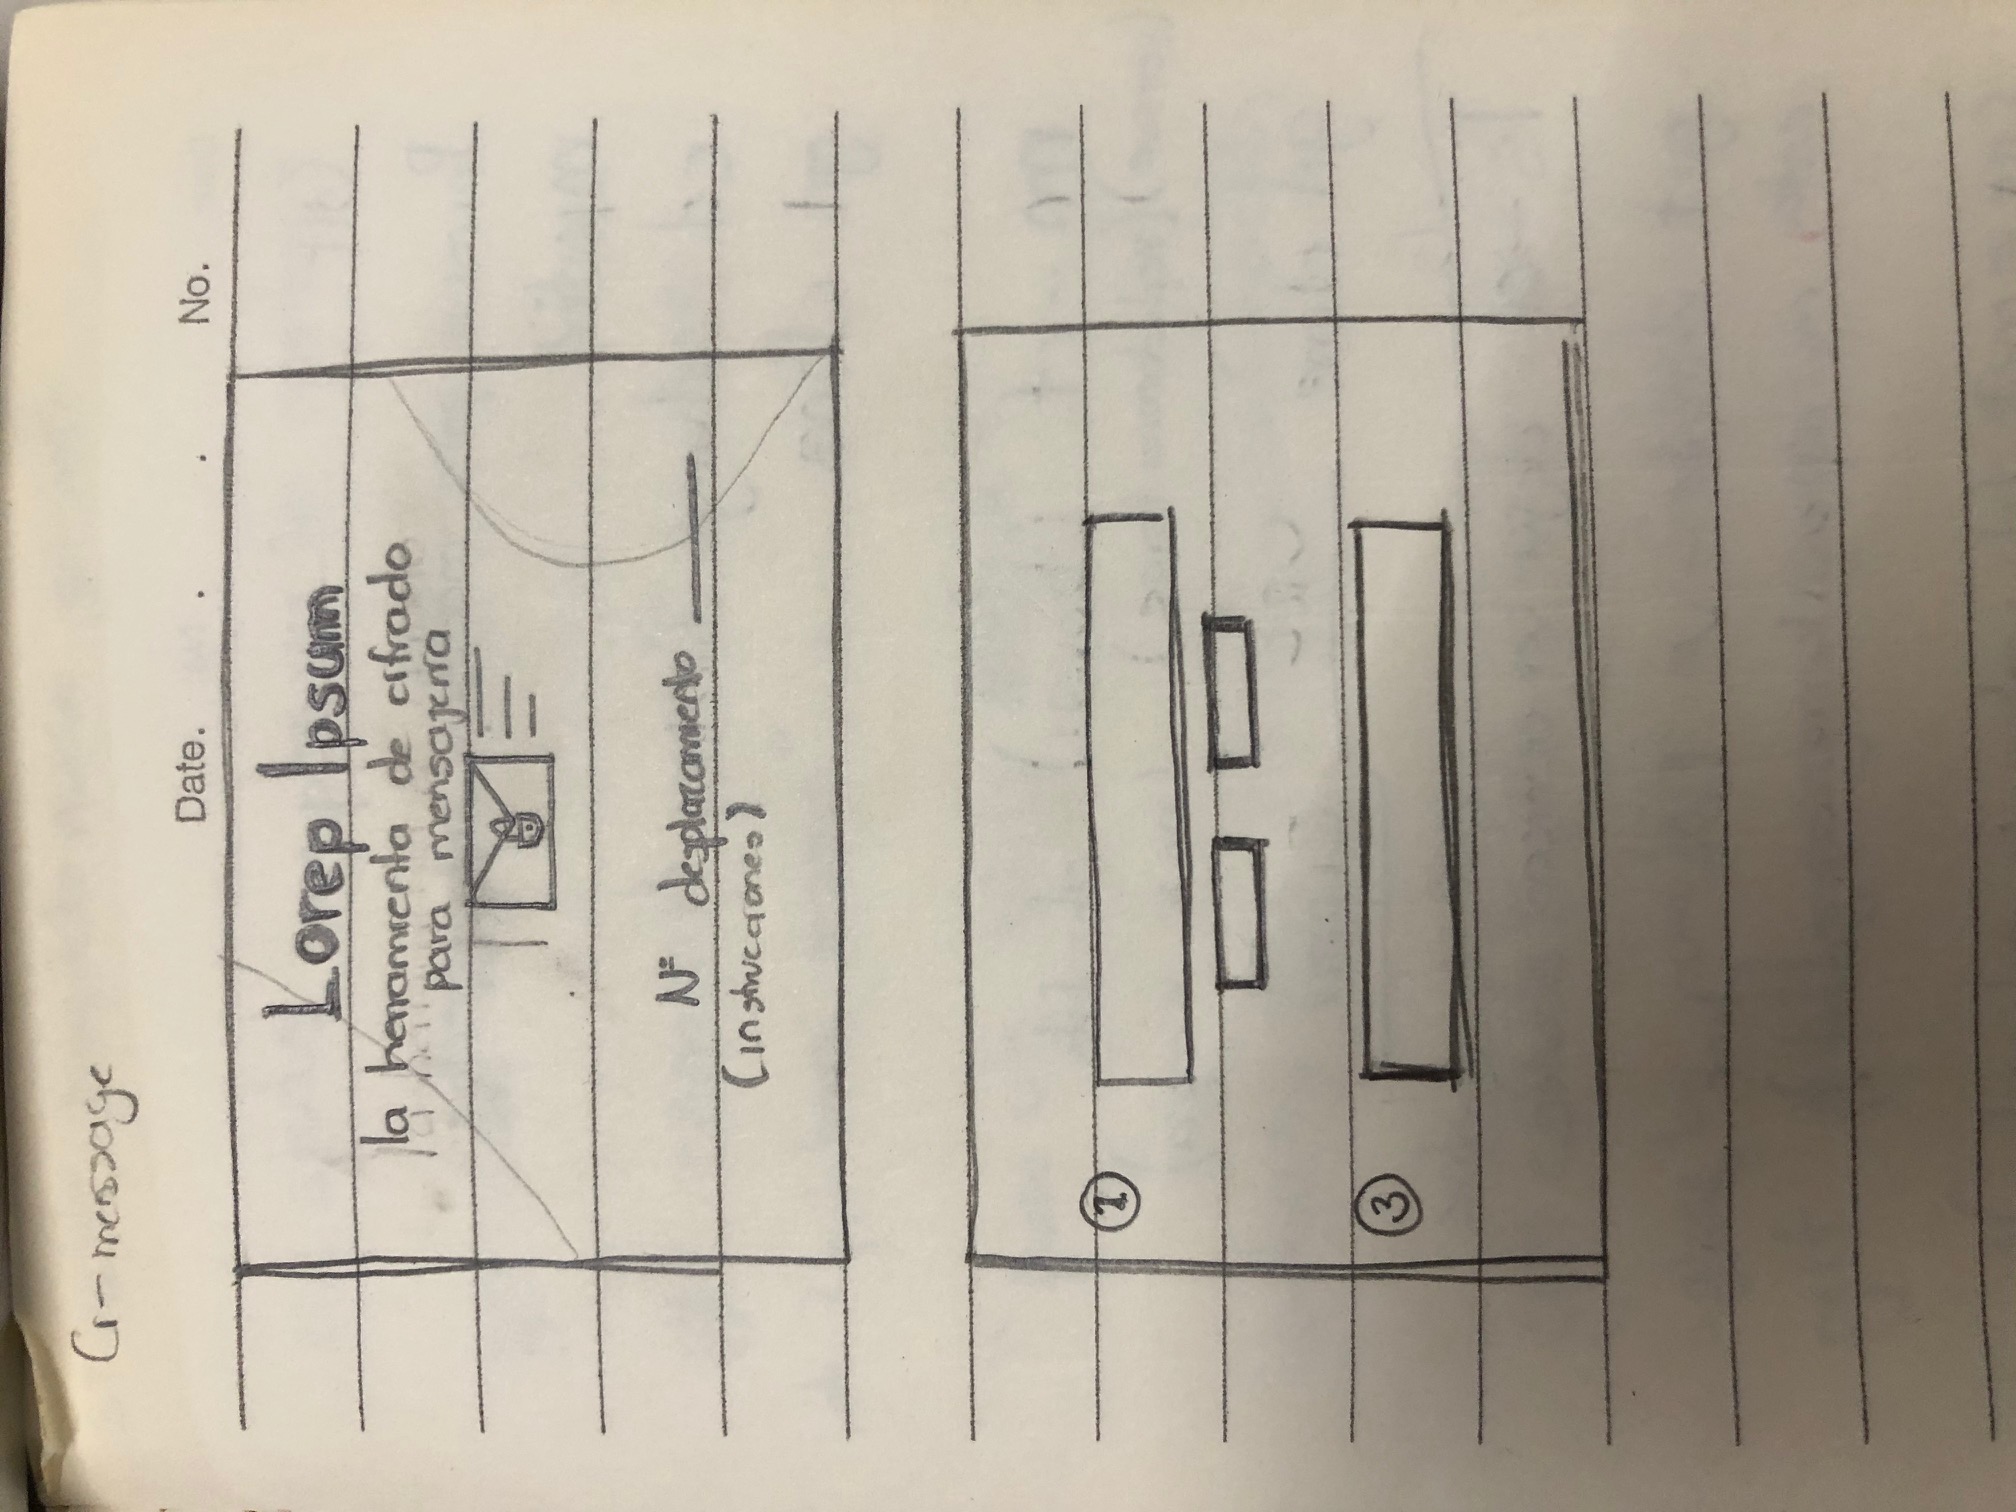 Cr-message
Date. . . No.
Lorep Ipsum
la herramienta de cifrado
para mensajería
Nº desplazamiento
(instrucciones)
1
3